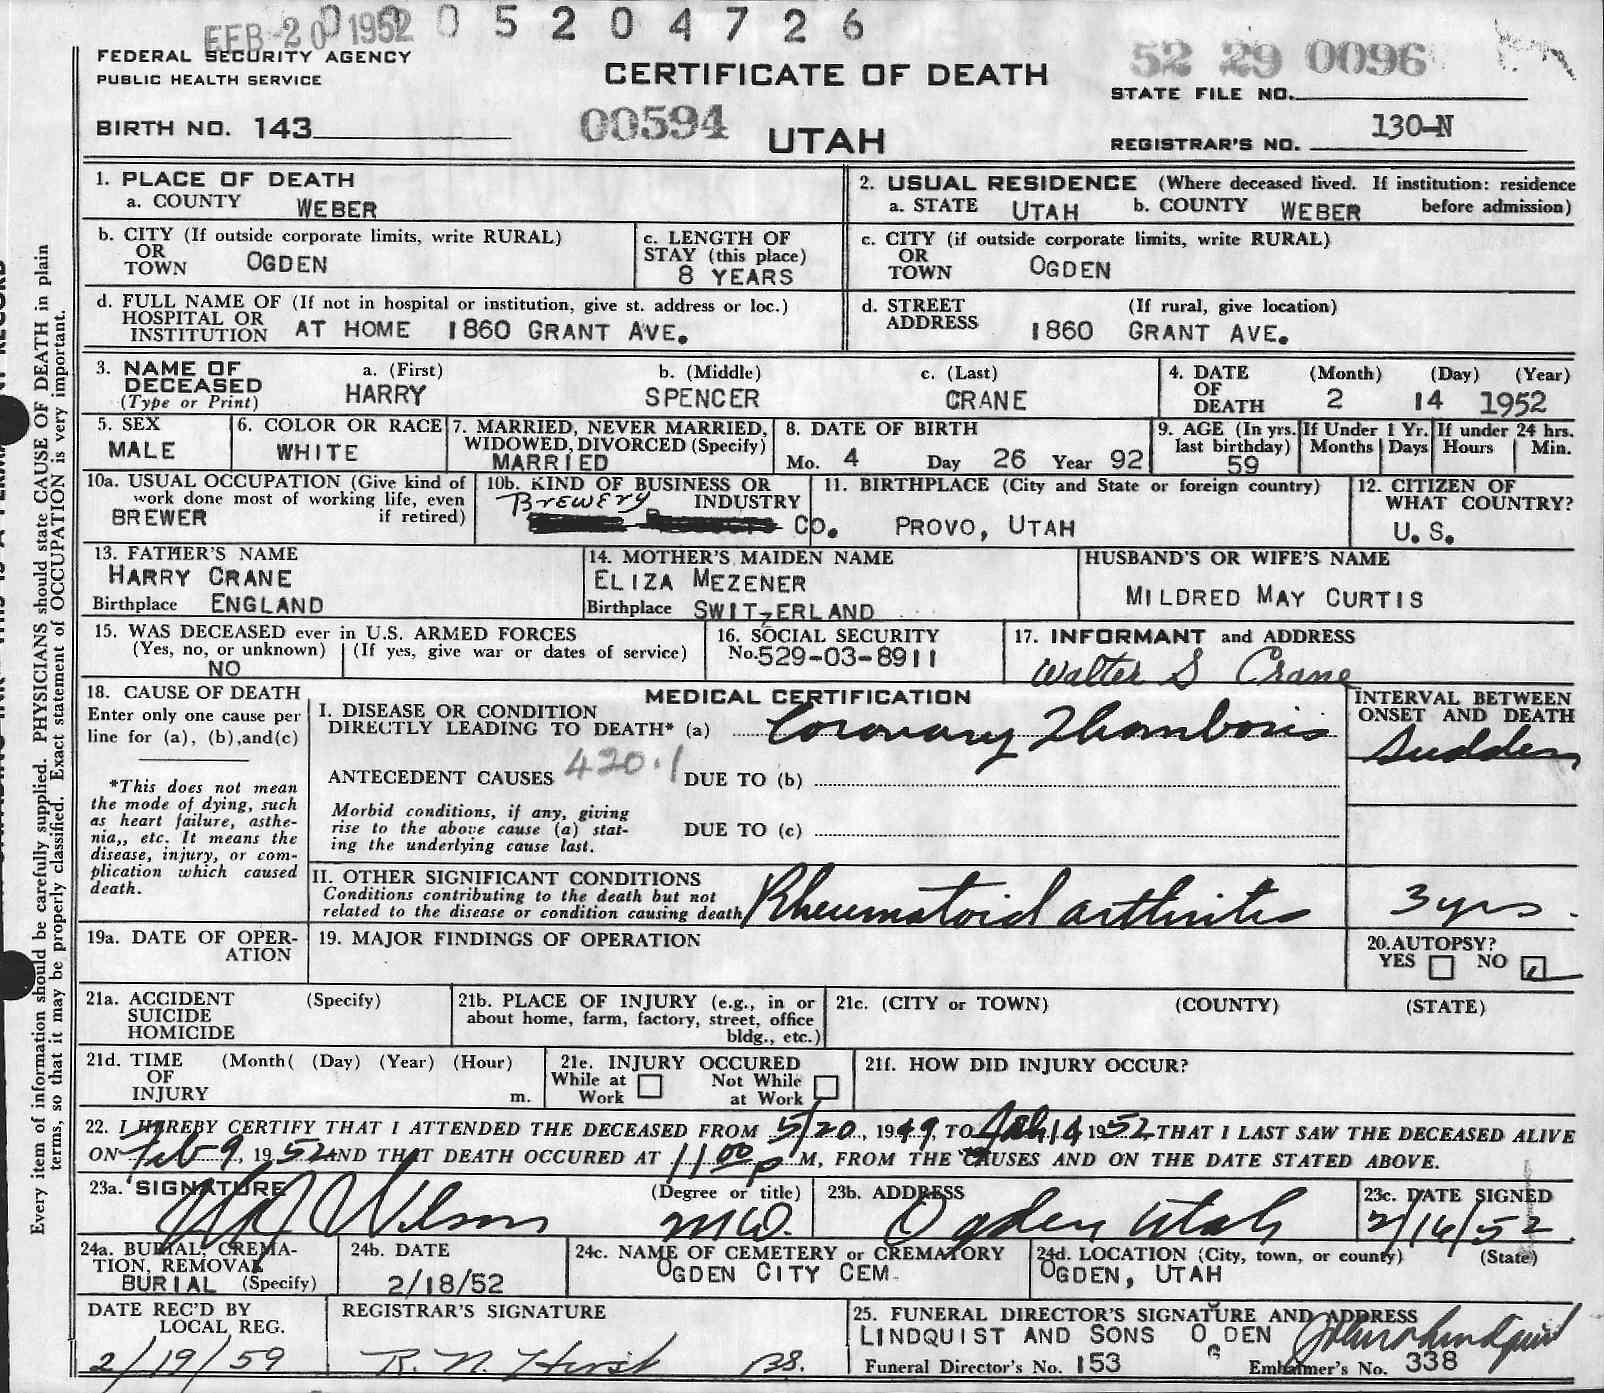 FEB 20 1952 0 5 2 0 4 7 2 6
FEDERAL SECURITY AGENCY
PUBLIC HEALTH SERVICE
CERTIFICATE OF DEATH
52 29 0096
STATE FILE NO.
BIRTH NO. 143
00594
UTAH
130-N
REGISTRAR'S NO.
1. PLACE OF DEATH
a. COUNTY WEBER
2. USUAL RESIDENCE (Where deceased lived. If institution: residence
a. STATE UTAH b. COUNTY WEBER before admission)
b. CITY (If outside corporate limits, write RURAL)
OR
TOWN OGDEN
c. LENGTH OF
STAY (this place)
8 YEARS
c. CITY (if outside corporate limits, write RURAL)
OR
TOWN OGDEN
d. FULL NAME OF (If not in hospital or institution, give st. address or loc.)
HOSPITAL OR
INSTITUTION AT HOME 1860 GRANT AVE.
d. STREET (If rural, give location)
ADDRESS 1860 GRANT AVE.
3. NAME OF
DECEASED
(Type or Print)
a. (First) b. (Middle) c. (Last)
HARRY SPENCER CRANE
4. DATE (Month) (Day) (Year)
OF
DEATH 2 14 1952
5. SEX
MALE
6. COLOR OR RACE
WHITE
7. MARRIED, NEVER MARRIED,
WIDOWED, DIVORCED (Specify)
MARRIED
8. DATE OF BIRTH
Mo. 4 Day 26 Year 92
9. AGE (In yrs.
last birthday)
59
If Under 1 Yr.
Months Days
If under 24 hrs.
Hours Min.
10a. USUAL OCCUPATION (Give kind of
work done most of working life, even
BREWER if retired)
10b. KIND OF BUSINESS OR
BREWERY INDUSTRY
CO.
11. BIRTHPLACE (City and State or foreign country)
PROVO, UTAH
12. CITIZEN OF
WHAT COUNTRY?
U.S.
13. FATHER'S NAME
HARRY CRANE
Birthplace ENGLAND
14. MOTHER'S MAIDEN NAME
ELIZA MEZENER
Birthplace SWITZERLAND
HUSBAND'S OR WIFE'S NAME
MILDRED MAY CURTIS
15. WAS DECEASED ever in U.S. ARMED FORCES
(Yes, no, or unknown) (If yes, give war or dates of service)
NO
16. SOCIAL SECURITY
No. 529-03-8911
17. INFORMANT and ADDRESS
Walter S Crane
18. CAUSE OF DEATH
Enter only one cause per
line for (a), (b),and(c)
*This does not mean
the mode of dying, such
as heart failure, asthe-
nia,, etc. It means the
disease, injury, or com-
plication which caused
death.
MEDICAL CERTIFICATION
I. DISEASE OR CONDITION
DIRECTLY LEADING TO DEATH* (a) Coronary Thombosis
ANTECEDENT CAUSES 420.1 DUE TO (b)
Morbid conditions, if any, giving
rise to the above cause (a) stat-
ing the underlying cause last.
DUE TO (c)
II. OTHER SIGNIFICANT CONDITIONS
Conditions contributing to the death but not
related to the disease or condition causing death Rheumatoid arthritis
INTERVAL BETWEEN
ONSET AND DEATH
Sudden
3 yrs.
19a. DATE OF OPER-
ATION
19. MAJOR FINDINGS OF OPERATION
20. AUTOPSY?
YES NO
21a. ACCIDENT (Specify)
SUICIDE
HOMICIDE
21b. PLACE OF INJURY (e.g., in or
about home, farm, factory, street, office
bldg., etc.)
21c. (CITY or TOWN) (COUNTY) (STATE)
21d. TIME (Month( (Day) (Year) (Hour)
OF
INJURY m.
21e. INJURY OCCURED
While at Not While
Work at Work
21f. HOW DID INJURY OCCUR?
22. I HEREBY CERTIFY THAT I ATTENDED THE DECEASED FROM 5/20, 1949, TO Feb 14 1952 THAT I LAST SAW THE DECEASED ALIVE
ON Feb 9, 1952 AND THAT DEATH OCCURED AT 11 00 p M, FROM THE CAUSES AND ON THE DATE STATED ABOVE.
23a. SIGNATURE (Degree or title)
Wilson M.D.
23b. ADDRESS
Ogden Utah
23c. DATE SIGNED
2/16/52
24a. BURIAL, CREMA-
TION, REMOVAL
BURIAL (Specify)
24b. DATE
2/18/52
24c. NAME OF CEMETERY or CREMATORY
OGDEN CITY CEM.
24d. LOCATION (City, town, or county) (State)
OGDEN, UTAH
DATE REC'D BY
LOCAL REG.
2/19/59
REGISTRAR'S SIGNATURE
R. N. Hirst
25. FUNERAL DIRECTOR'S SIGNATURE AND ADDRESS
LINDQUIST AND SONS OGDEN
Funeral Director's No. 153 Embalmer's No. 338
Every item of information should be carefully supplied. PHYSICIANS should state CAUSE OF DEATH in plain
terms, so that it may be properly classified. Exact statement of OCCUPATION is very important.